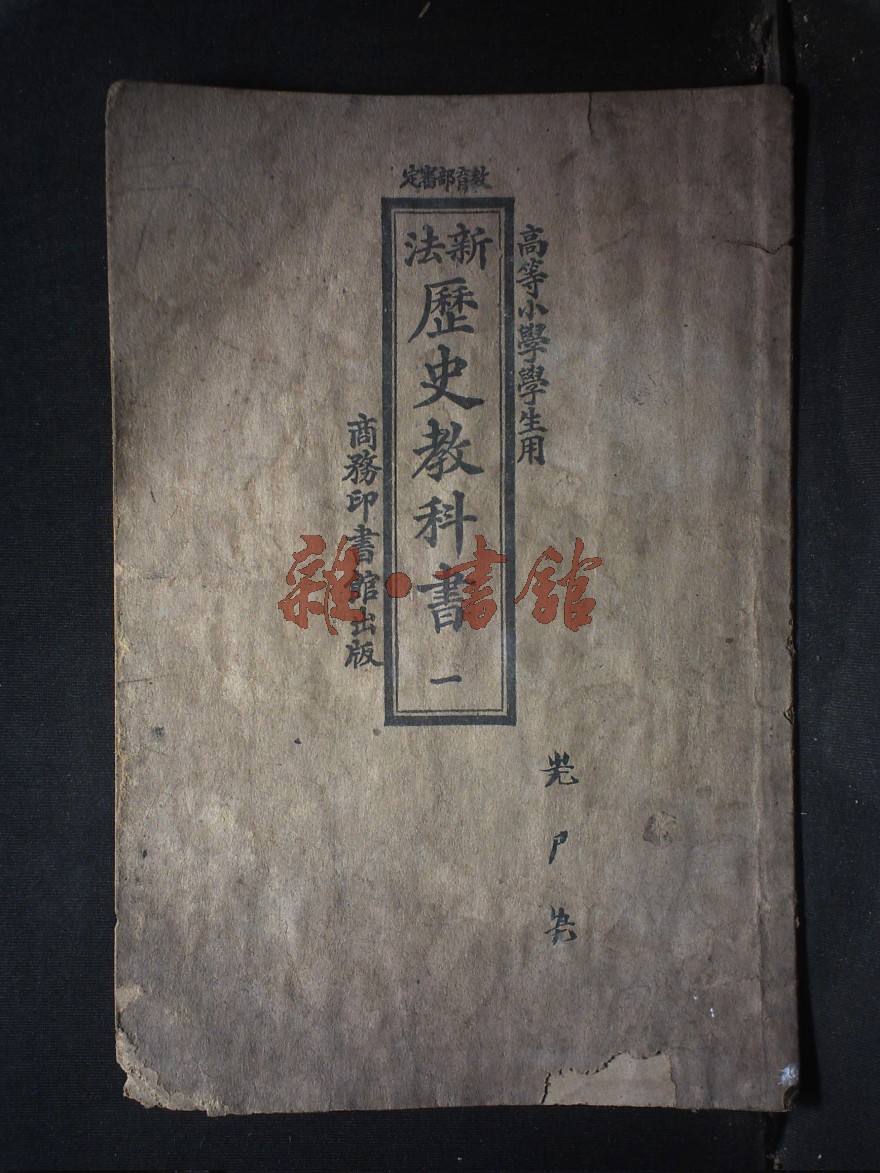 教育部審定
高等小學學生用
新法
歷史教科書
一
商務印書館出版
雜·書館